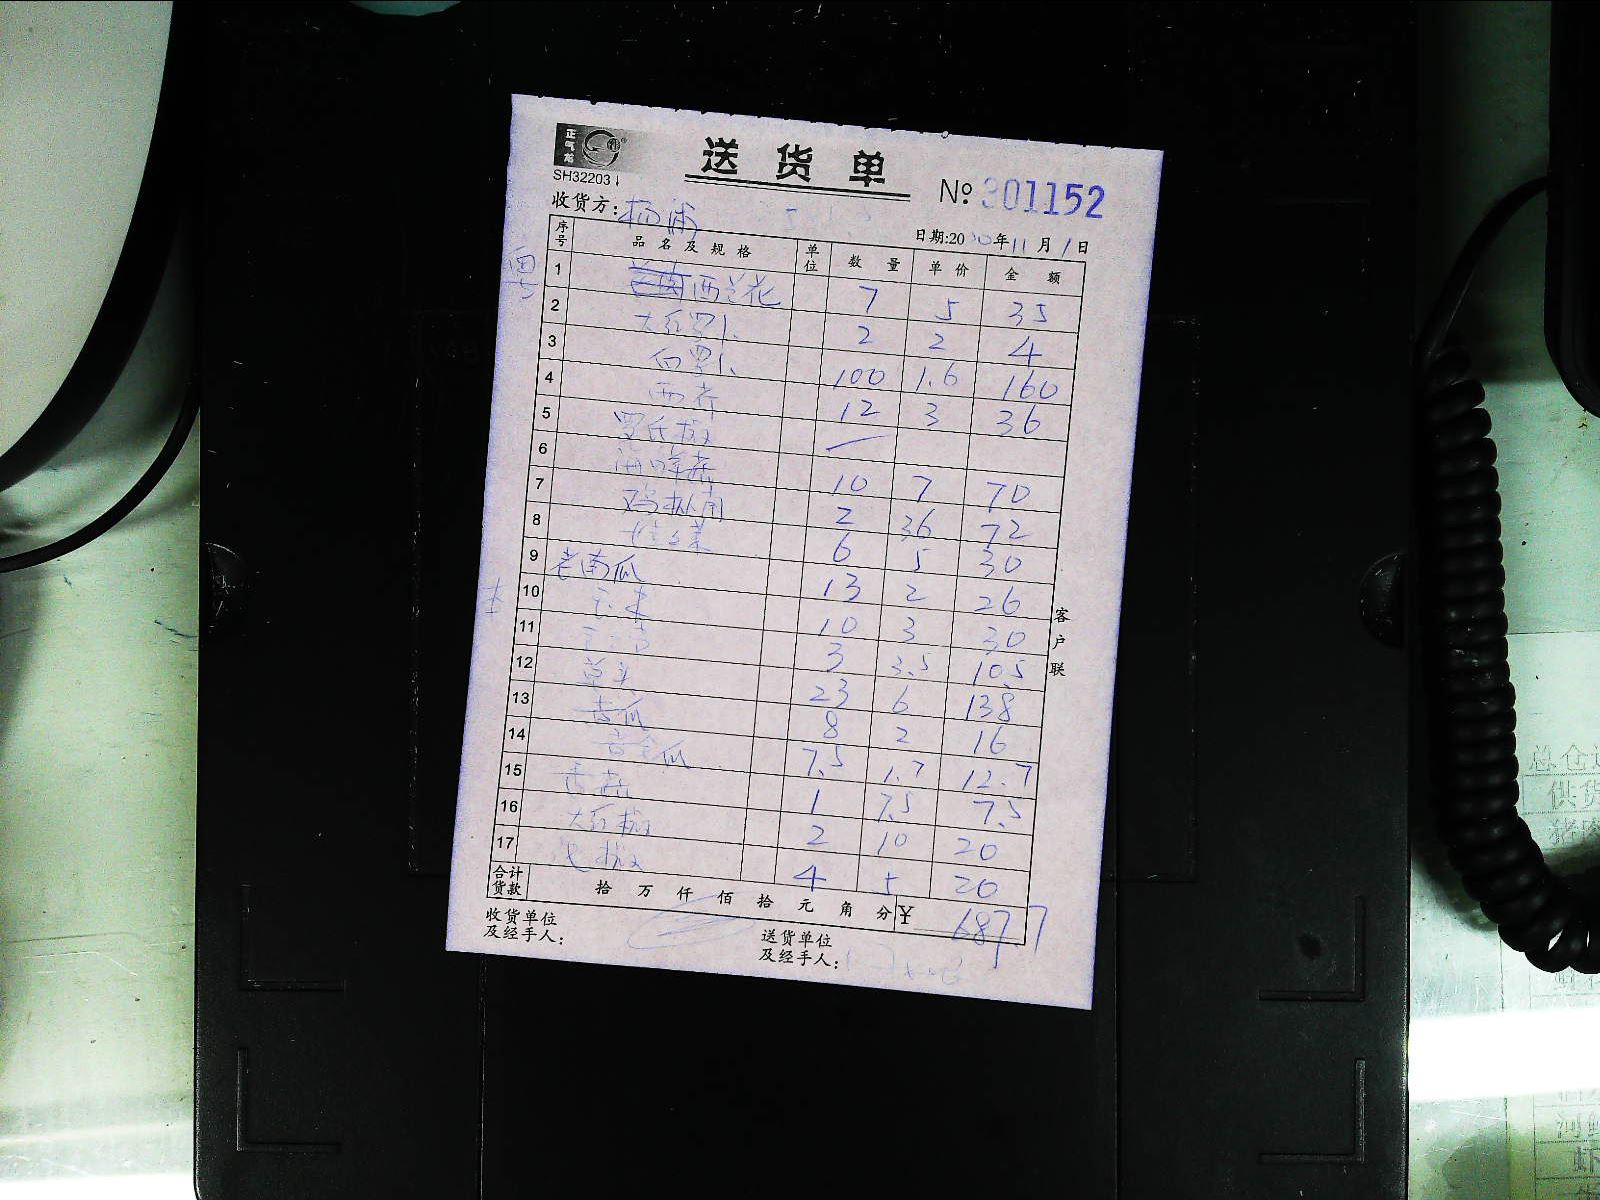 正气龙
送货单
SH32203
№ 301152
收货方: 杨浦
日期:20 年11月1日
序号 品名及规格 单位 数量 单价 金额
1 西兰花 7 5 35
2 大红萝卜 2 2 4
3 白萝卜 100 1.6 160
4 西芹 12 3 36
5 罗氏椒 —
6 海鲜菇 10 7 70
7 鸡枞菌 2 36 72
8 娃娃菜 6 5 30
9 老南瓜 13 2 26
10 玉米 10 3 30
11 3 3.5 10.5
12 草头 23 6 138
13 8 2 16
14 7.5 1.7 12.7
15 香菇 1 7.5 7.5
16 大红椒 2 10 20
17 4 5 20
合计货款 拾 万 仟 佰 拾 元 角 分 ¥ 687.7
收货单位及经手人:
送货单位及经手人:
客户联
总仓
供货